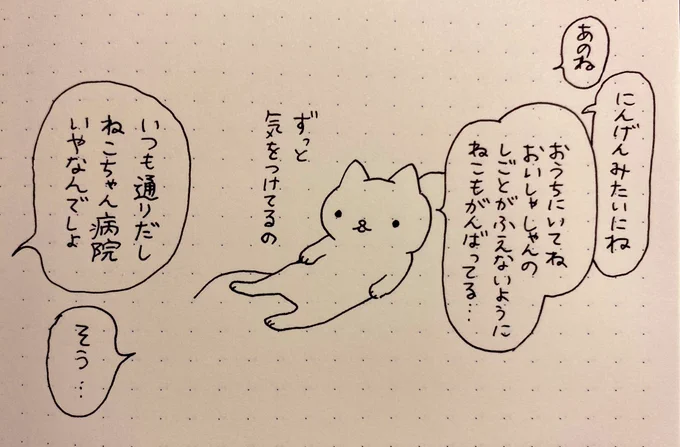 あのね
にんげんみたいにね
おうちにいてね
おいしゃしゃんの
しごとがふえないように
ねこもがんばってる…
ずっと
気をつけてるの
いつも通りだし
ねこちゃん病院
いやなんでしょ
そう…